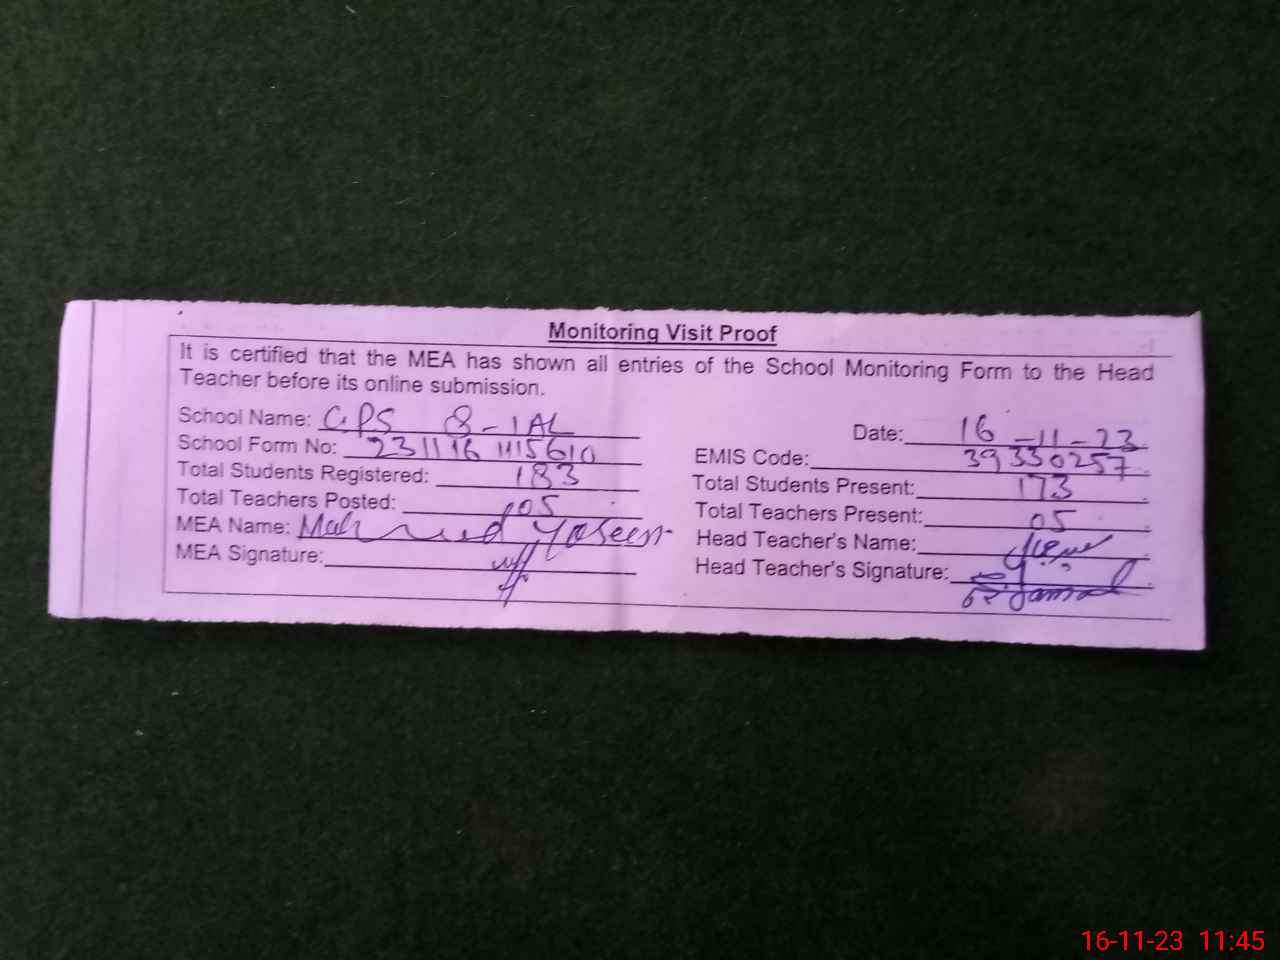 Monitoring Visit Proof
It is certified that the MEA has shown all entries of the School Monitoring Form to the Head
Teacher before its online submission.
School Name: GPS 8-1AL
Date: 16-11-23
School Form No: 231116 1115610
EMIS Code: 39330257
Total Students Registered: 183
Total Students Present: 173
Total Teachers Posted: 05
Total Teachers Present: 05
MEA Name: Mahmood Yaseen
Head Teacher's Name:
MEA Signature:
Head Teacher's Signature:
16-11-23 11:45